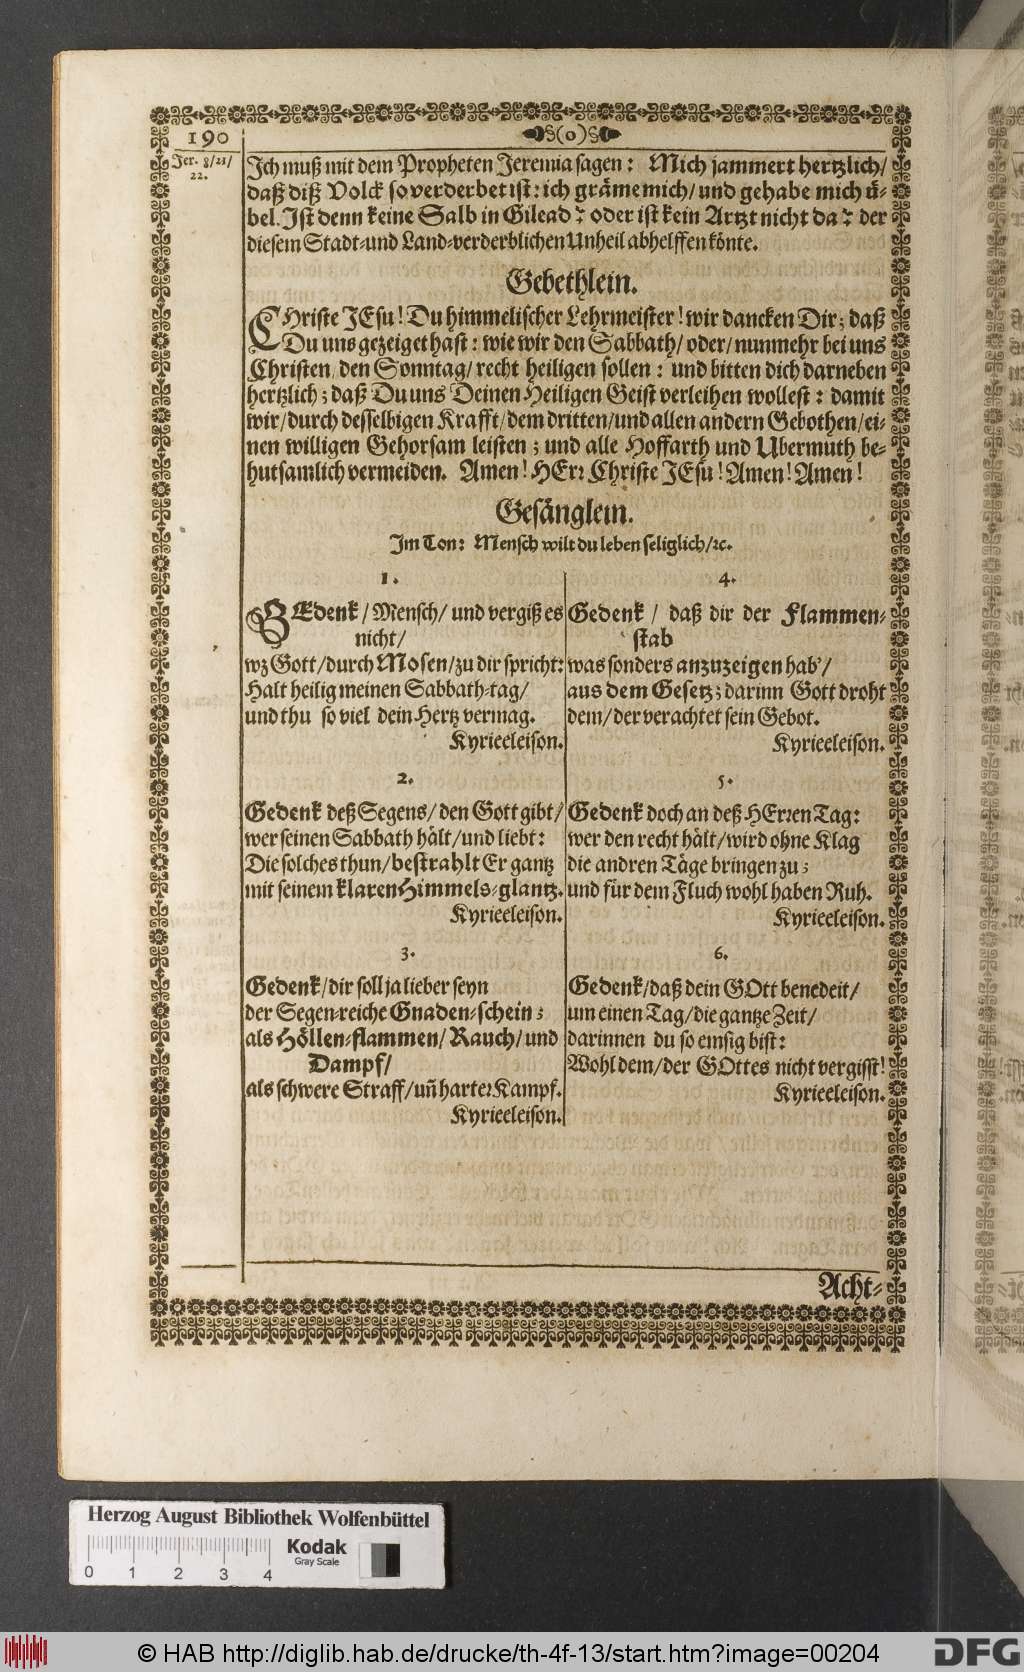 190
§(o)§
Jer. 8/21/
22.
Ich muß mit dem Propheten Jeremia sagen: Mich jammert hertzlich/
daß diß Volck so verderbet ist: ich gräme mich/ und gehabe mich ü-
bel. Ist denn keine Salb in Gilead? oder ist kein Artzt nicht da? der
diesem Stadt-und Land-verderblichen Unheil abhelffen könte.
Gebethlein.
CHriste JEsu! Du himmelischer Lehrmeister! wir dancken Dir; daß
Du uns gezeiget hast: wie wir den Sabbath/ oder/ nunmehr bei uns
Christen/ den Sonntag/ recht heiligen sollen: und bitten dich darneben
hertzlich; daß Du uns Deinen Heiligen Geist verleihen wollest: damit
wir/ durch desselbigen Krafft/ dem dritten/ und allen andern Gebothen/ ei-
nen willigen Gehorsam leisten; und alle Hoffarth und Ubermuth be-
hutsamlich vermeiden. Amen! HErr Christe JEsu! Amen! Amen!
Gesänglein.
Im Ton: Mensch wilt du leben seliglich/ꝛc.
1.
GEdenk/ Mensch/ und vergiß es
nicht/
wz Gott/ durch Mosen/ zu dir spricht:
Halt heilig meinen Sabbath-tag/
und thu so viel dein Hertz vermag.
Kyrieeleison.
2.
Gedenk deß Segens/ den Gott gibt/
wer seinen Sabbath hält/ und liebt:
Die solches thun/ bestrahlt Er gantz
mit seinem klaren Himmels-glantz.
Kyrieeleison.
3.
Gedenk/ dir soll ja lieber seyn
der Segen-reiche Gnaden-schein;
als Höllen-flammen/ Rauch/ und
Dampf/
als schwere Straff/ uñ harter Kampf.
Kyrieeleison.
4.
Gedenk/ daß dir der Flammen-
stab
was sonders anzuzeigen hab'/
aus dem Gesetz; darinn Gott droht
dem/ der verachtet sein Gebot.
Kyrieeleison.
5.
Gedenk doch an deß HErren Tag:
wer den recht hält/ wird ohne Klag
die andren Täge bringen zu;
und für dem Fluch wohl haben Ruh.
Kyrieeleison.
6.
Gedenk/ daß dein GOtt benedeit/
um einen Tag/ die gantze Zeit/
darinnen du so emsig bist:
Wohl dem/ der GOttes nicht vergisst!
Kyrieeleison.
Acht-
Herzog August Bibliothek Wolfenbüttel
0 1 2 3 4
Kodak
Gray Scale
© HAB http://diglib.hab.de/drucke/th-4f-13/start.htm?image=00204
DFG